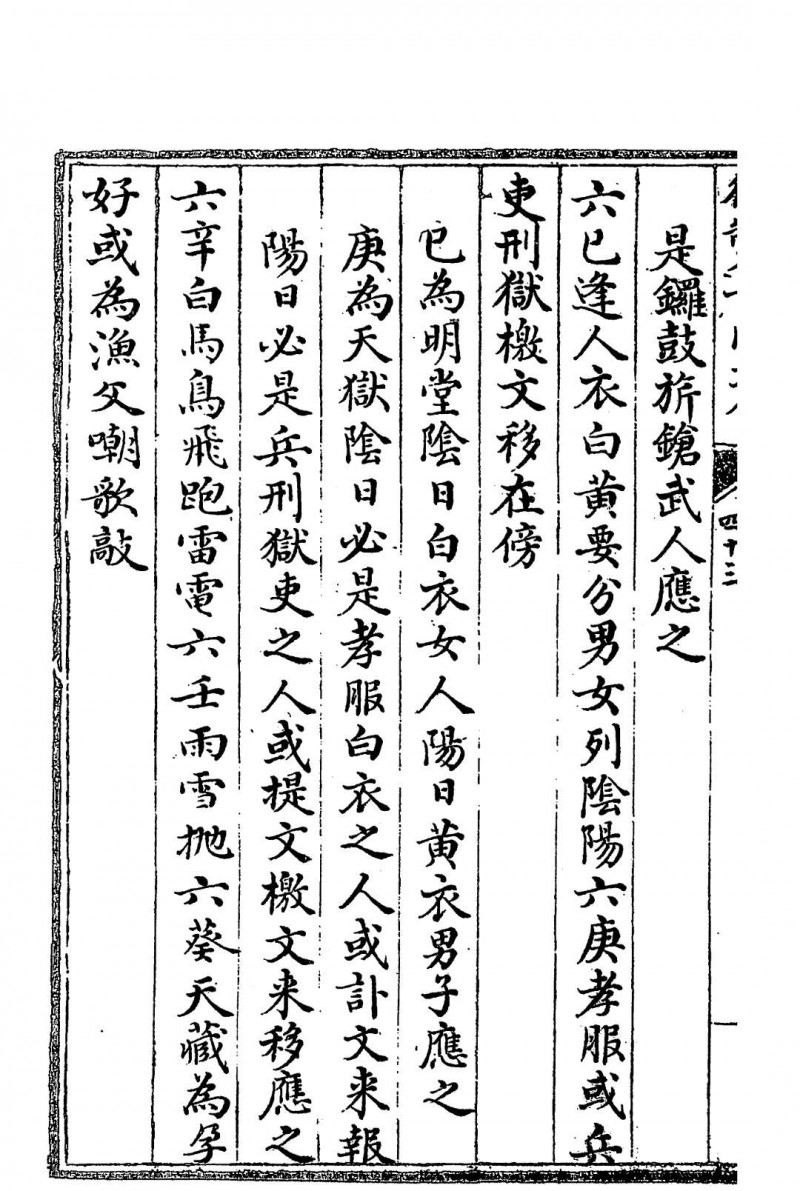 四十三
是鑼鼓旂鎗武人應之
六己逢人衣白黃要分男女列陰陽六庚孝服或兵
吏刑獄檄文移在傍
己為明堂陰日白衣女人陽日黃衣男子應之
庚為天獄陰日必是孝服白衣之人或訃文来報
陽日必是兵刑獄吏之人或提文檄文来移應之
六辛白馬鳥飛跑雷電六壬雨雪抛六葵天藏為孕
好或為漁父嘲歌敲